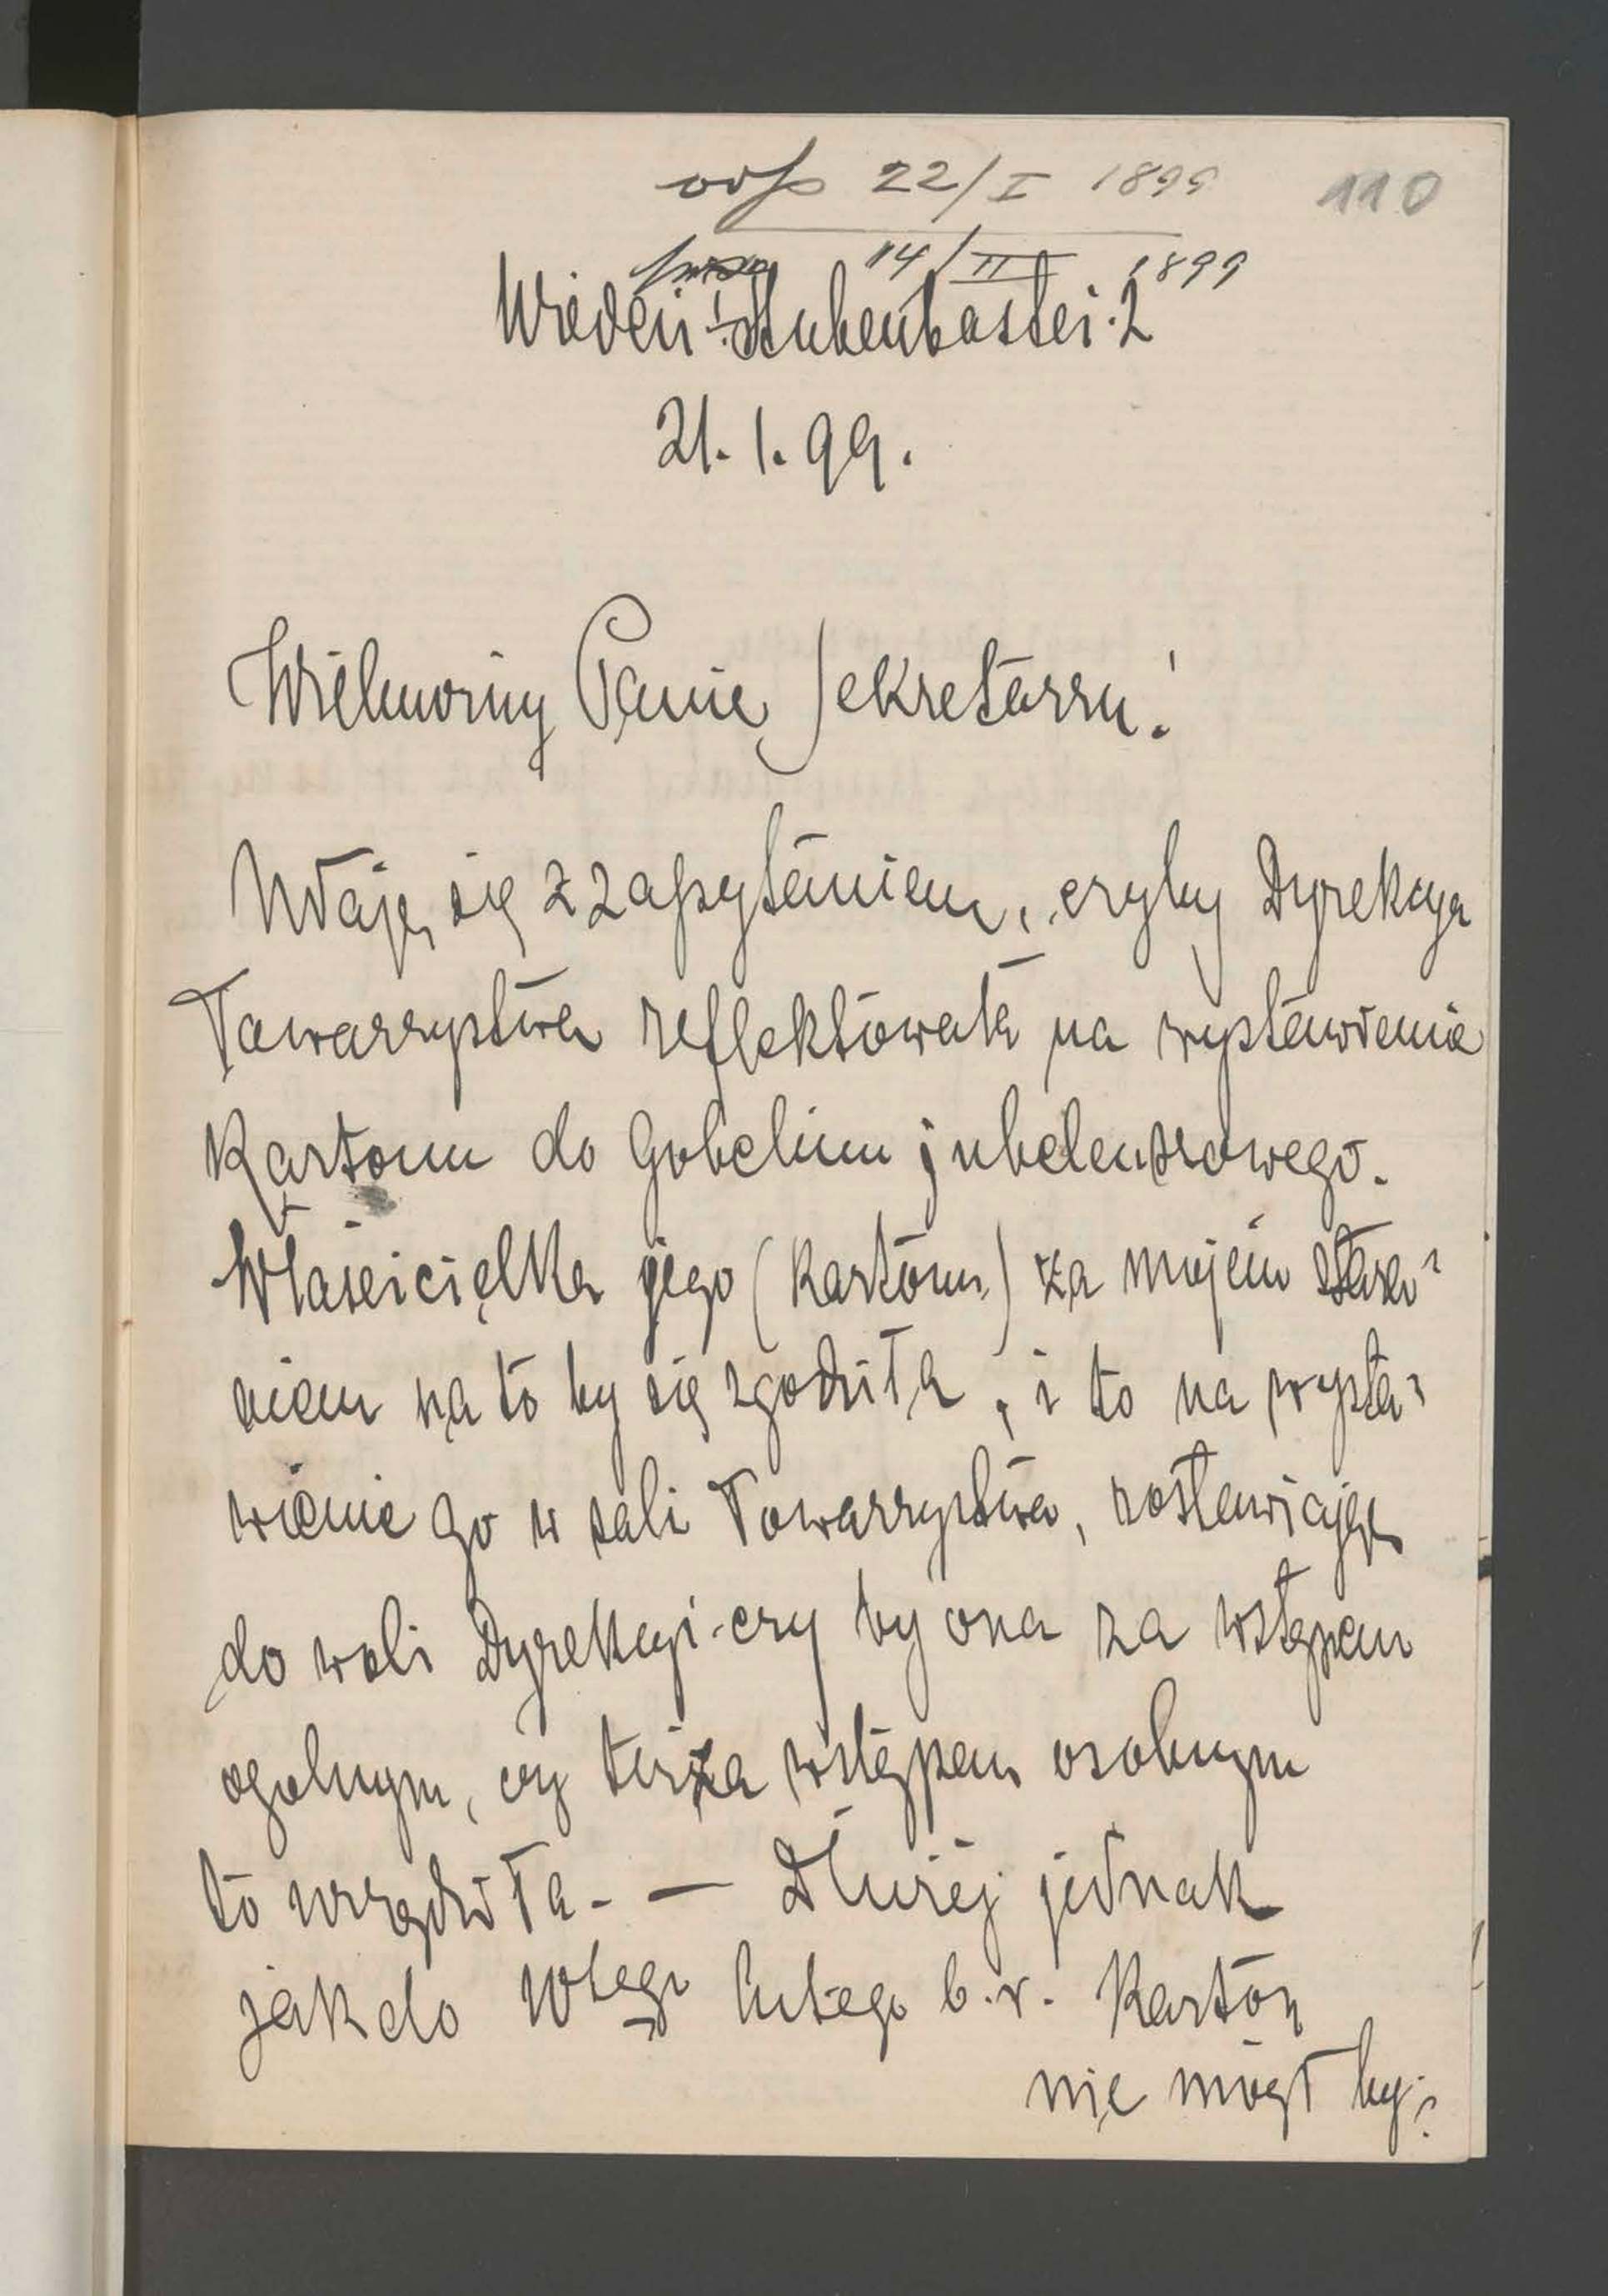 odp 22/I 1899 110
14/II 1899
Wiedeń I. Stubenbastei. 2
21. 1. 99.
Wielmożny Panie Sekretarzu!
Udaję się z zapytaniem, czyby Dyrekcya
Towarzystwa reflektowała na wystawienie
Kartonu do Gobelinu jubeleuszowego.
Właścicielka jego (Kartonu) za mojem stara=
niem na to by się zgodziła, i to na wysta=
wienie go w sali Towarzystwa, zostawiając
do woli Dyrekcyi - czy by ona za wstępem
ogolnym, czy też za wstępem osobnym
to urządziła. — Dłużéj jednak
jak do 10tego lutego b. r. Karton
nie mógł by=